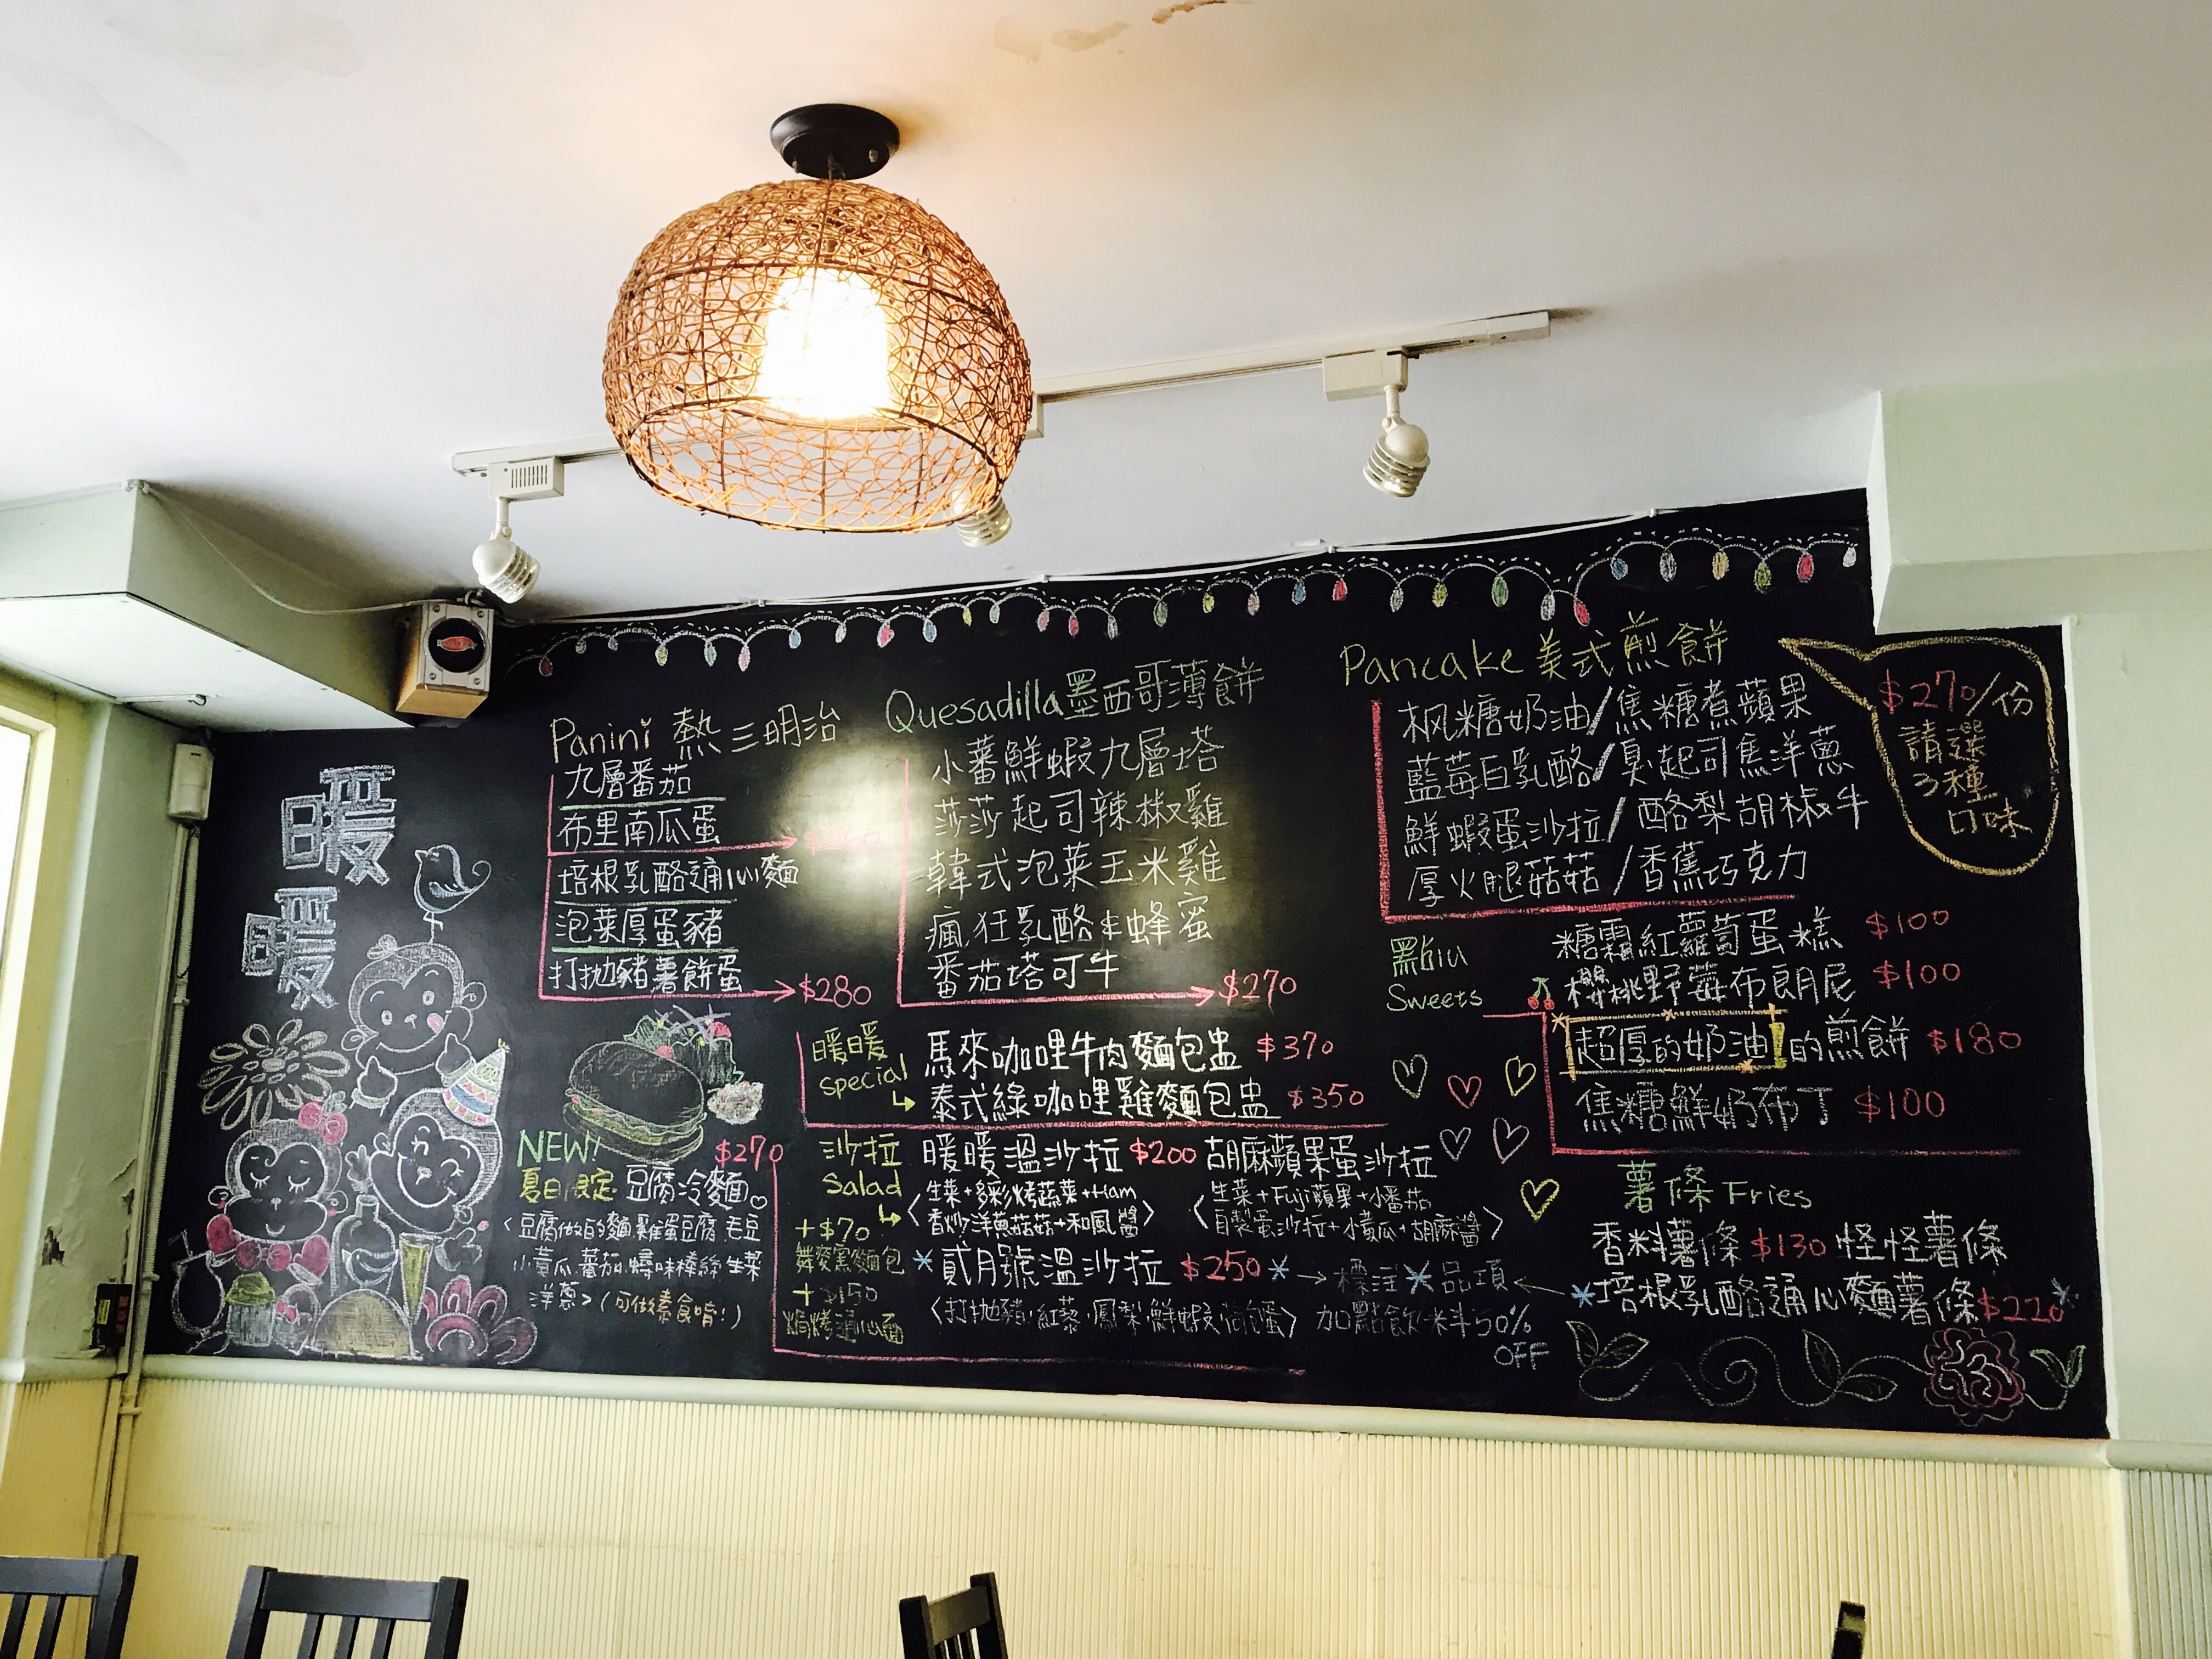 暖
暖
Panini 熱三明治
九層番茄
布里南瓜蛋
培根乳酪通心麵
泡菜厚蛋豬
打拋豬薯餅蛋
$280
NEW!
$270
夏日限定 豆腐冷麵
〈豆腐做的麵.雞蛋豆腐.毛豆
小黃瓜.蕃茄.蟳味棒絲.生菜
洋蔥>(可做素食唷!)
Quesadilla墨西哥薄餅
小蕃鮮蝦九層塔
莎莎起司辣椒雞
韓式泡菜玉米雞
瘋狂乳酪&蜂蜜
番茄塔可牛
$270
暖暖
special
馬來咖哩牛肉麵包盅 $370
泰式綠咖哩雞麵包盅 $350
沙拉
Salad
+$70
舞麥窯麵包
+$150
焗烤通心麵
暖暖溫沙拉 $200
〈生菜+多彩烤蔬菜+Ham
香炒洋蔥菇菇+和風醬〉
胡麻蘋果蛋沙拉
〈生菜+Fuji蘋果+小番茄
自製蛋沙拉+小黃瓜+胡麻醬〉
*貳月號溫沙拉 $250*
〈打拋豬.紅藜.鳳梨.鮮蝦.荷包蛋〉
→標注*品項←
加點飲料50%
OFF
Pancake 美式煎餅
枫糖奶油/焦糖煮蘋果
藍莓白乳酪/臭起司焦洋蔥
鮮蝦蛋沙拉/酪梨胡椒牛
厚火腿菇菇/香蕉巧克力
$270/份
請選
3種
口味
點心
Sweets
糖霜紅蘿蔔蛋糕 $100
櫻桃野莓布朗尼 $100
超厚的奶油的煎餅 $180
焦糖鮮奶布丁 $100
薯條 Fries
香料薯條 $130 怪怪薯條
*培根乳酪通心麵薯條$220*